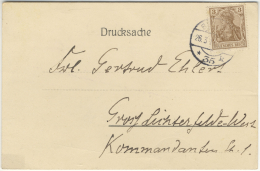 Drucksache
Frl. Gertrud Ehlert
Gross Lichterfelde-West
Kommandanten St. 1.
3
3
35